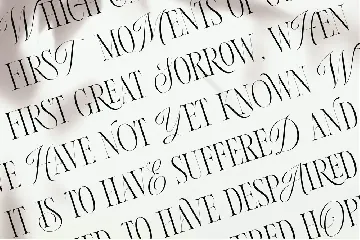 WHICH
FIRST MOMENTS OF
FIRST GREAT SORROW, WHEN
HAVE NOT YET KNOWN W
IT IS TO HAVE SUFFERED AND
ED TO HAVE DESPAIRED
ERED HOP